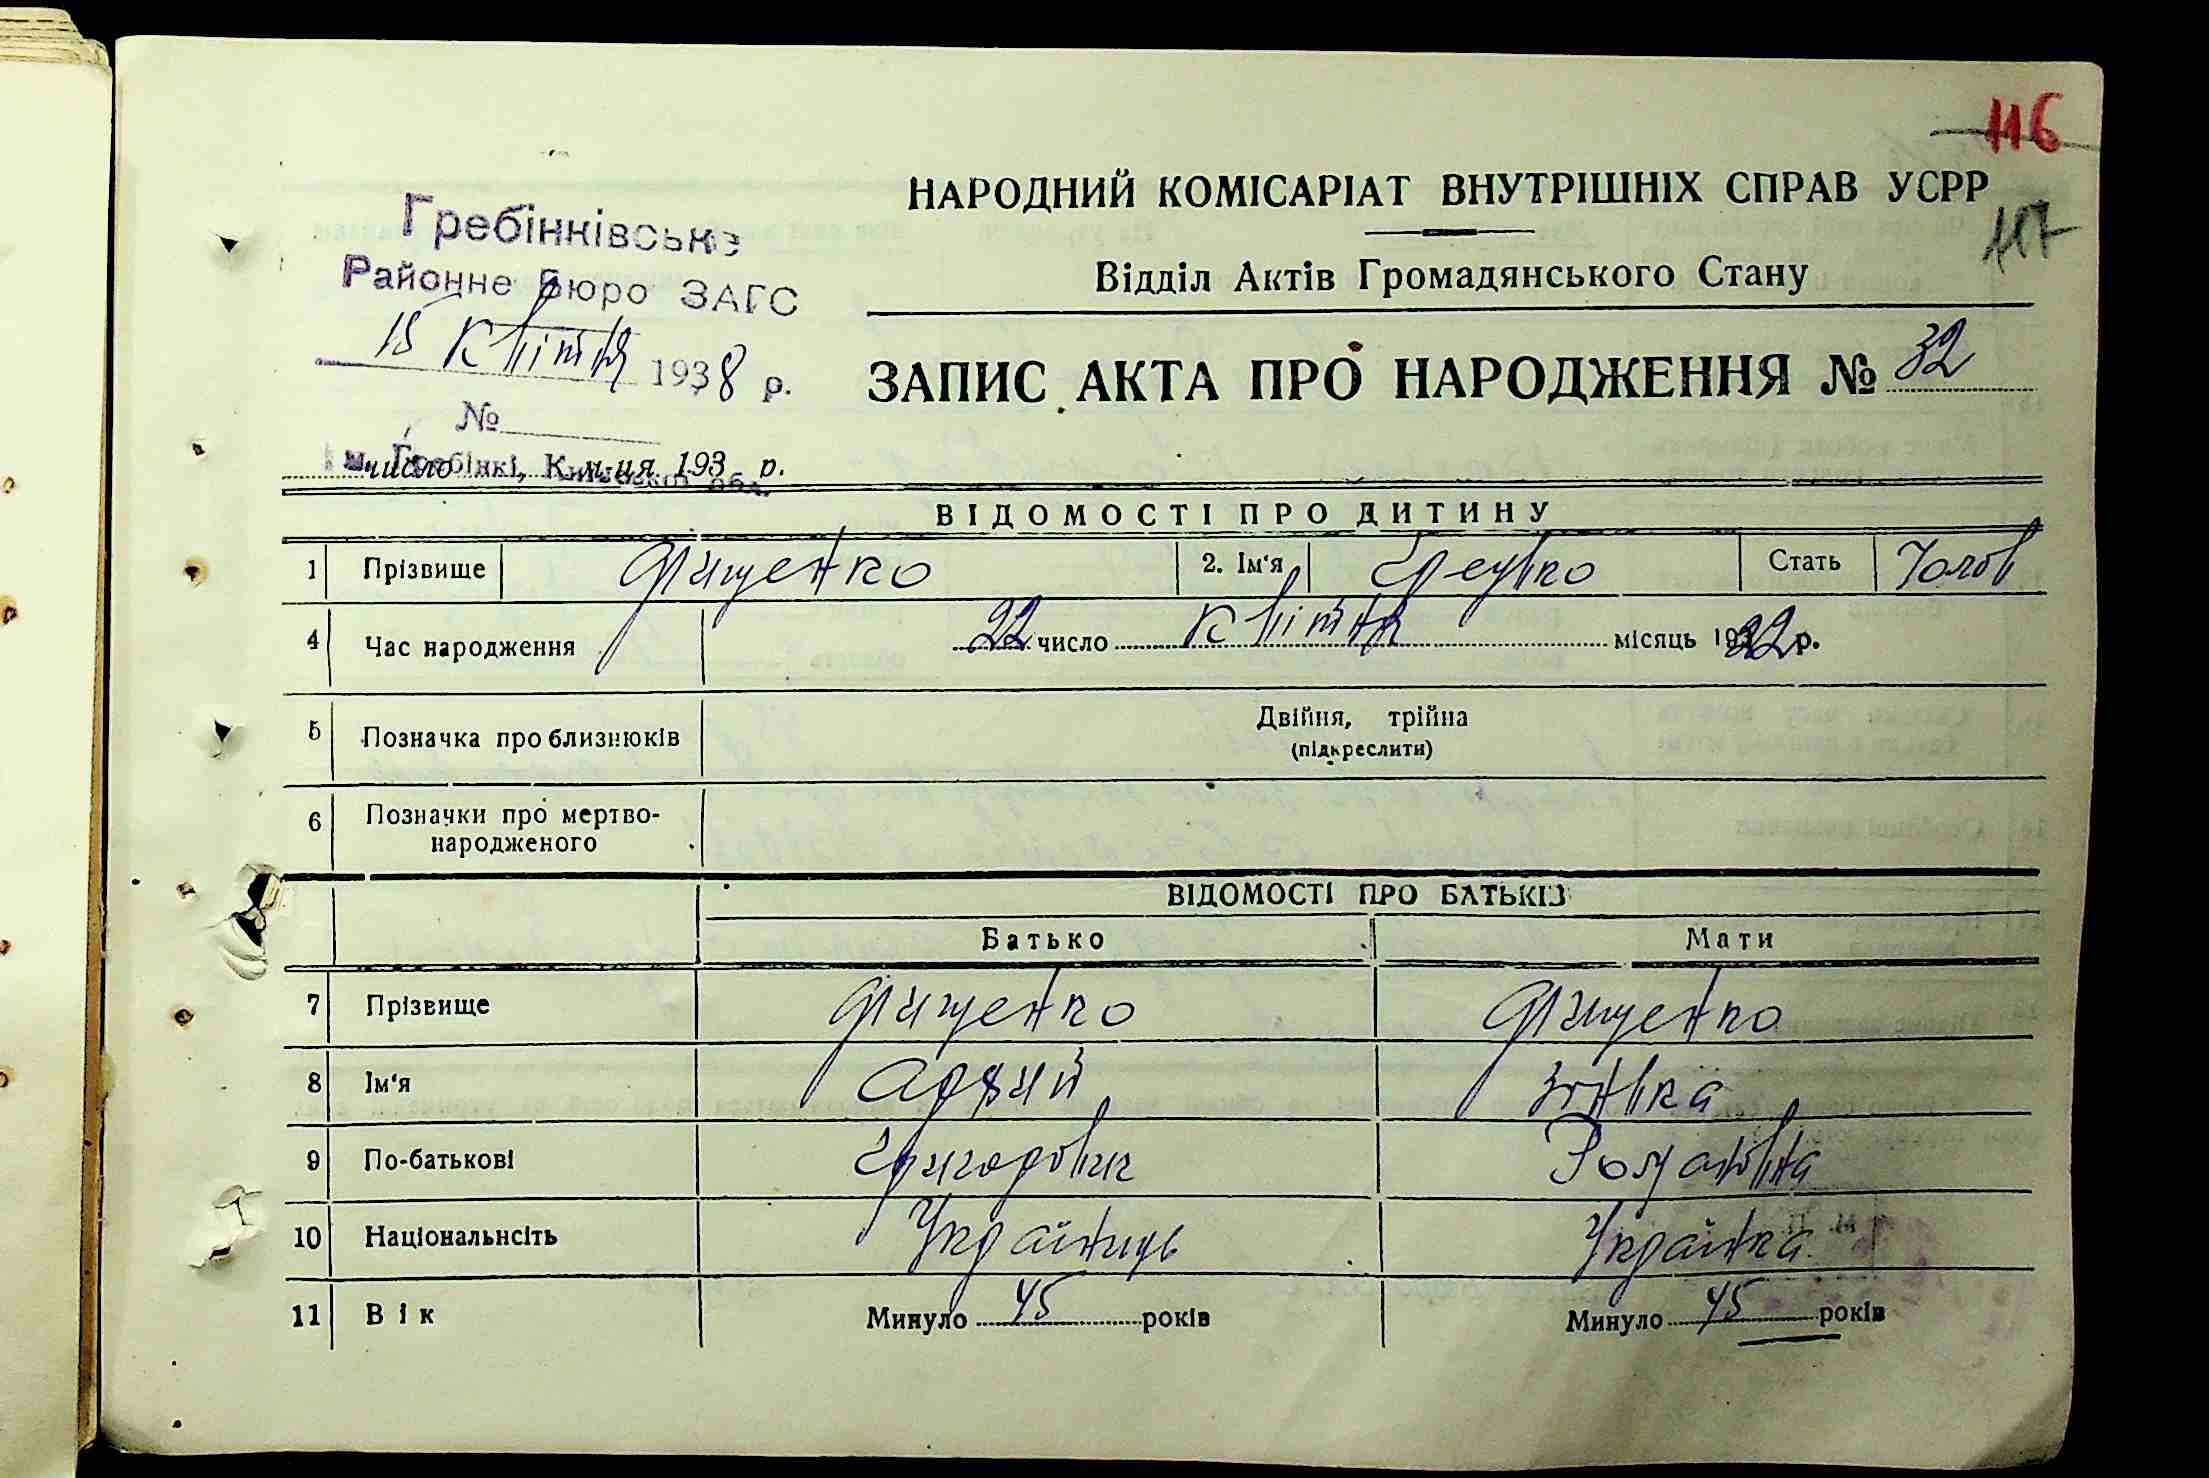 116
НАРОДНИЙ КОМІСАРІАТ ВНУТРІШНІХ СПРАВ УСРР
117
Відділ Актів Громадянського Стану
Гребінківське
Районне Бюро ЗАГС
15 Квітня 1938 р.
№
м. Гребінкі, Київської обл.
число м-ця 193 р.
ЗАПИС АКТА ПРО НАРОДЖЕННЯ № 32
ВІДОМОСТІ ПРО ДИТИНУ
1 Прізвище Фищенко 2. Ім'я Стать Чолов
4 Час народження 22 число Квітня місяць 1922 р.
5 Позначка про близнюків Двійня, трійна
(підкреслити)
6 Позначки про мертво-
народженого
ВІДОМОСТІ ПРО БАТЬКІВ
Батько Мати
7 Прізвище Фищенко Фищенко
8 Ім'я Зінька
9 По-батькові Григорович Романівна
10 Національність Українець Українка
11 Вік Минуло 45 років Минуло 45 років